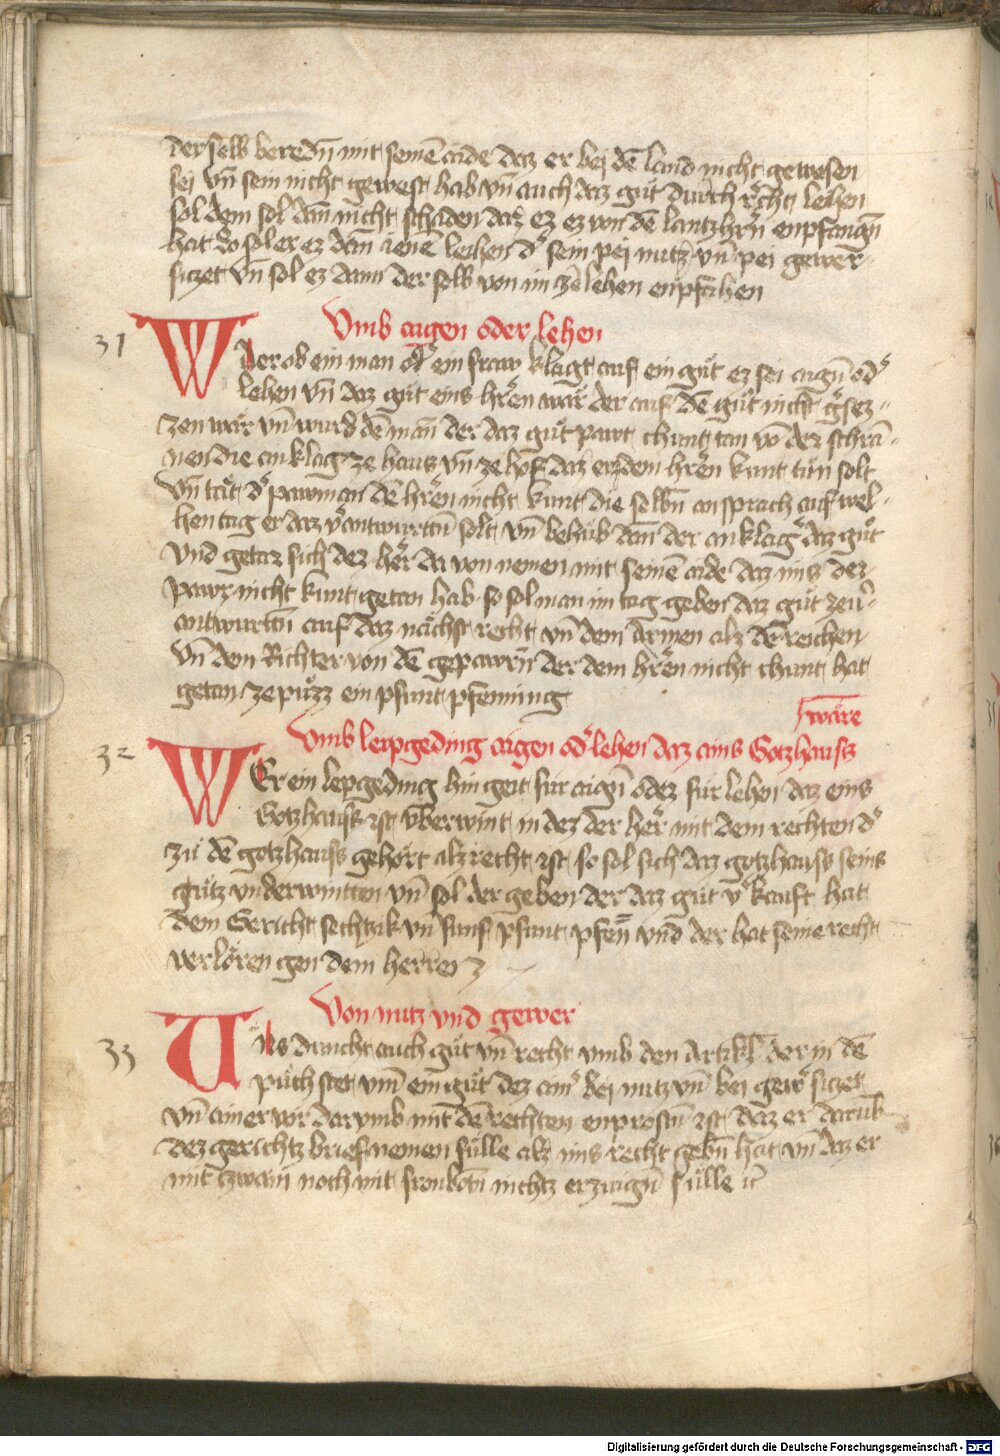 derselb beredn̄ mit seinē aide daz er bej dē land nicht gewesen
sei vn̄ sein nicht gewest hab vn̄ auch daz gůt durch rᵉcht lehen
sol dem sol dan̄ nicht schaden daz er ez von dē lantzhrn̄ enpfangn̄
hat So sol er ez dem iene leihen dᵉ sein pei nutz vn̄ pei gewer
siczet vn̄ sol ez dann der selb von im ze lehen enpfahen
31
Vmb aigen oder lehen
Wder ob ein man odᵉ ein fraw klagt auf ein gůt ez sei aign̄ odᵉ
lehen vn̄ daz gůt eins hrᵉen wär der auf dē gůt nicht gᵉsez-
zen wär vn̄ wurd dē man̄ der daz gůt pawt chunt tan vō der schrā-
nen die anklag ze haus vn̄ ze hof daz erz dem hrᵉen kunt tůn solt
vn̄ tät dᵉ pawman dē hrᵉen nicht kunt die selbn̄ ansprach auf wel-
hen tag er daz vᵉantwurttn̄ solt vn̄ behab dan̄ der anklagᵉ daz gůt
Vnd getar sich dez der hᵉr da von nemen mit seinē aide daz ims der
pawr nicht kunt getan hab so sol man im tag geben daz gůt ze vᵉ-
antwurttn̄ auf daz nächst recht vn̄ dem Armen alz dē reichen
Vn̄ dem Richter von dē gepawrn̄ der dem hrᵉen nicht chunt hat
getan ze půzz ein pfunt pfenning
wäre
32
Vmb leipgeding aigen odᵉ lehen daz ains Gotzhauss
WEr ein leipgeding hin geit für aign̄ oder für lehen daz eins
Gotzhauss ist v̈berwint in dez der hᵉr mit dem rechten dᵉ
zů dē gotzhauss gehört alz recht ist so sol sich daz gotzhauss seins
gůtz vnderwintten vn̄ sol der geben der daz gůt vᵉkauft hat
dem Gericht sechtzik vn̄ fünf pfunt pfen̄ vnd der hat seine recht
verloren gen dem herren
33
Von nutz vnd gewer
UNs dunchct auch gůt vn̄ recht vmb den Artikl̄ der in dē
půch stet vm̄ ein gůt dez ainᵉ bej nutz vn̄ bej gewᵉ siczet
vn̄ ainer vor darvmb mit dē rechten enprostn̄ ist daz er darūb
dez gerichtz brief nemen sülle alz ims recht gebn̄ hat vn̄ daz er
mit zwain noch mit fronbotn̄ nichtz erzaign̄ sülle ic̄
Digitalisierung gefördert durch die Deutsche Forschungsgemeinschaft - DFG